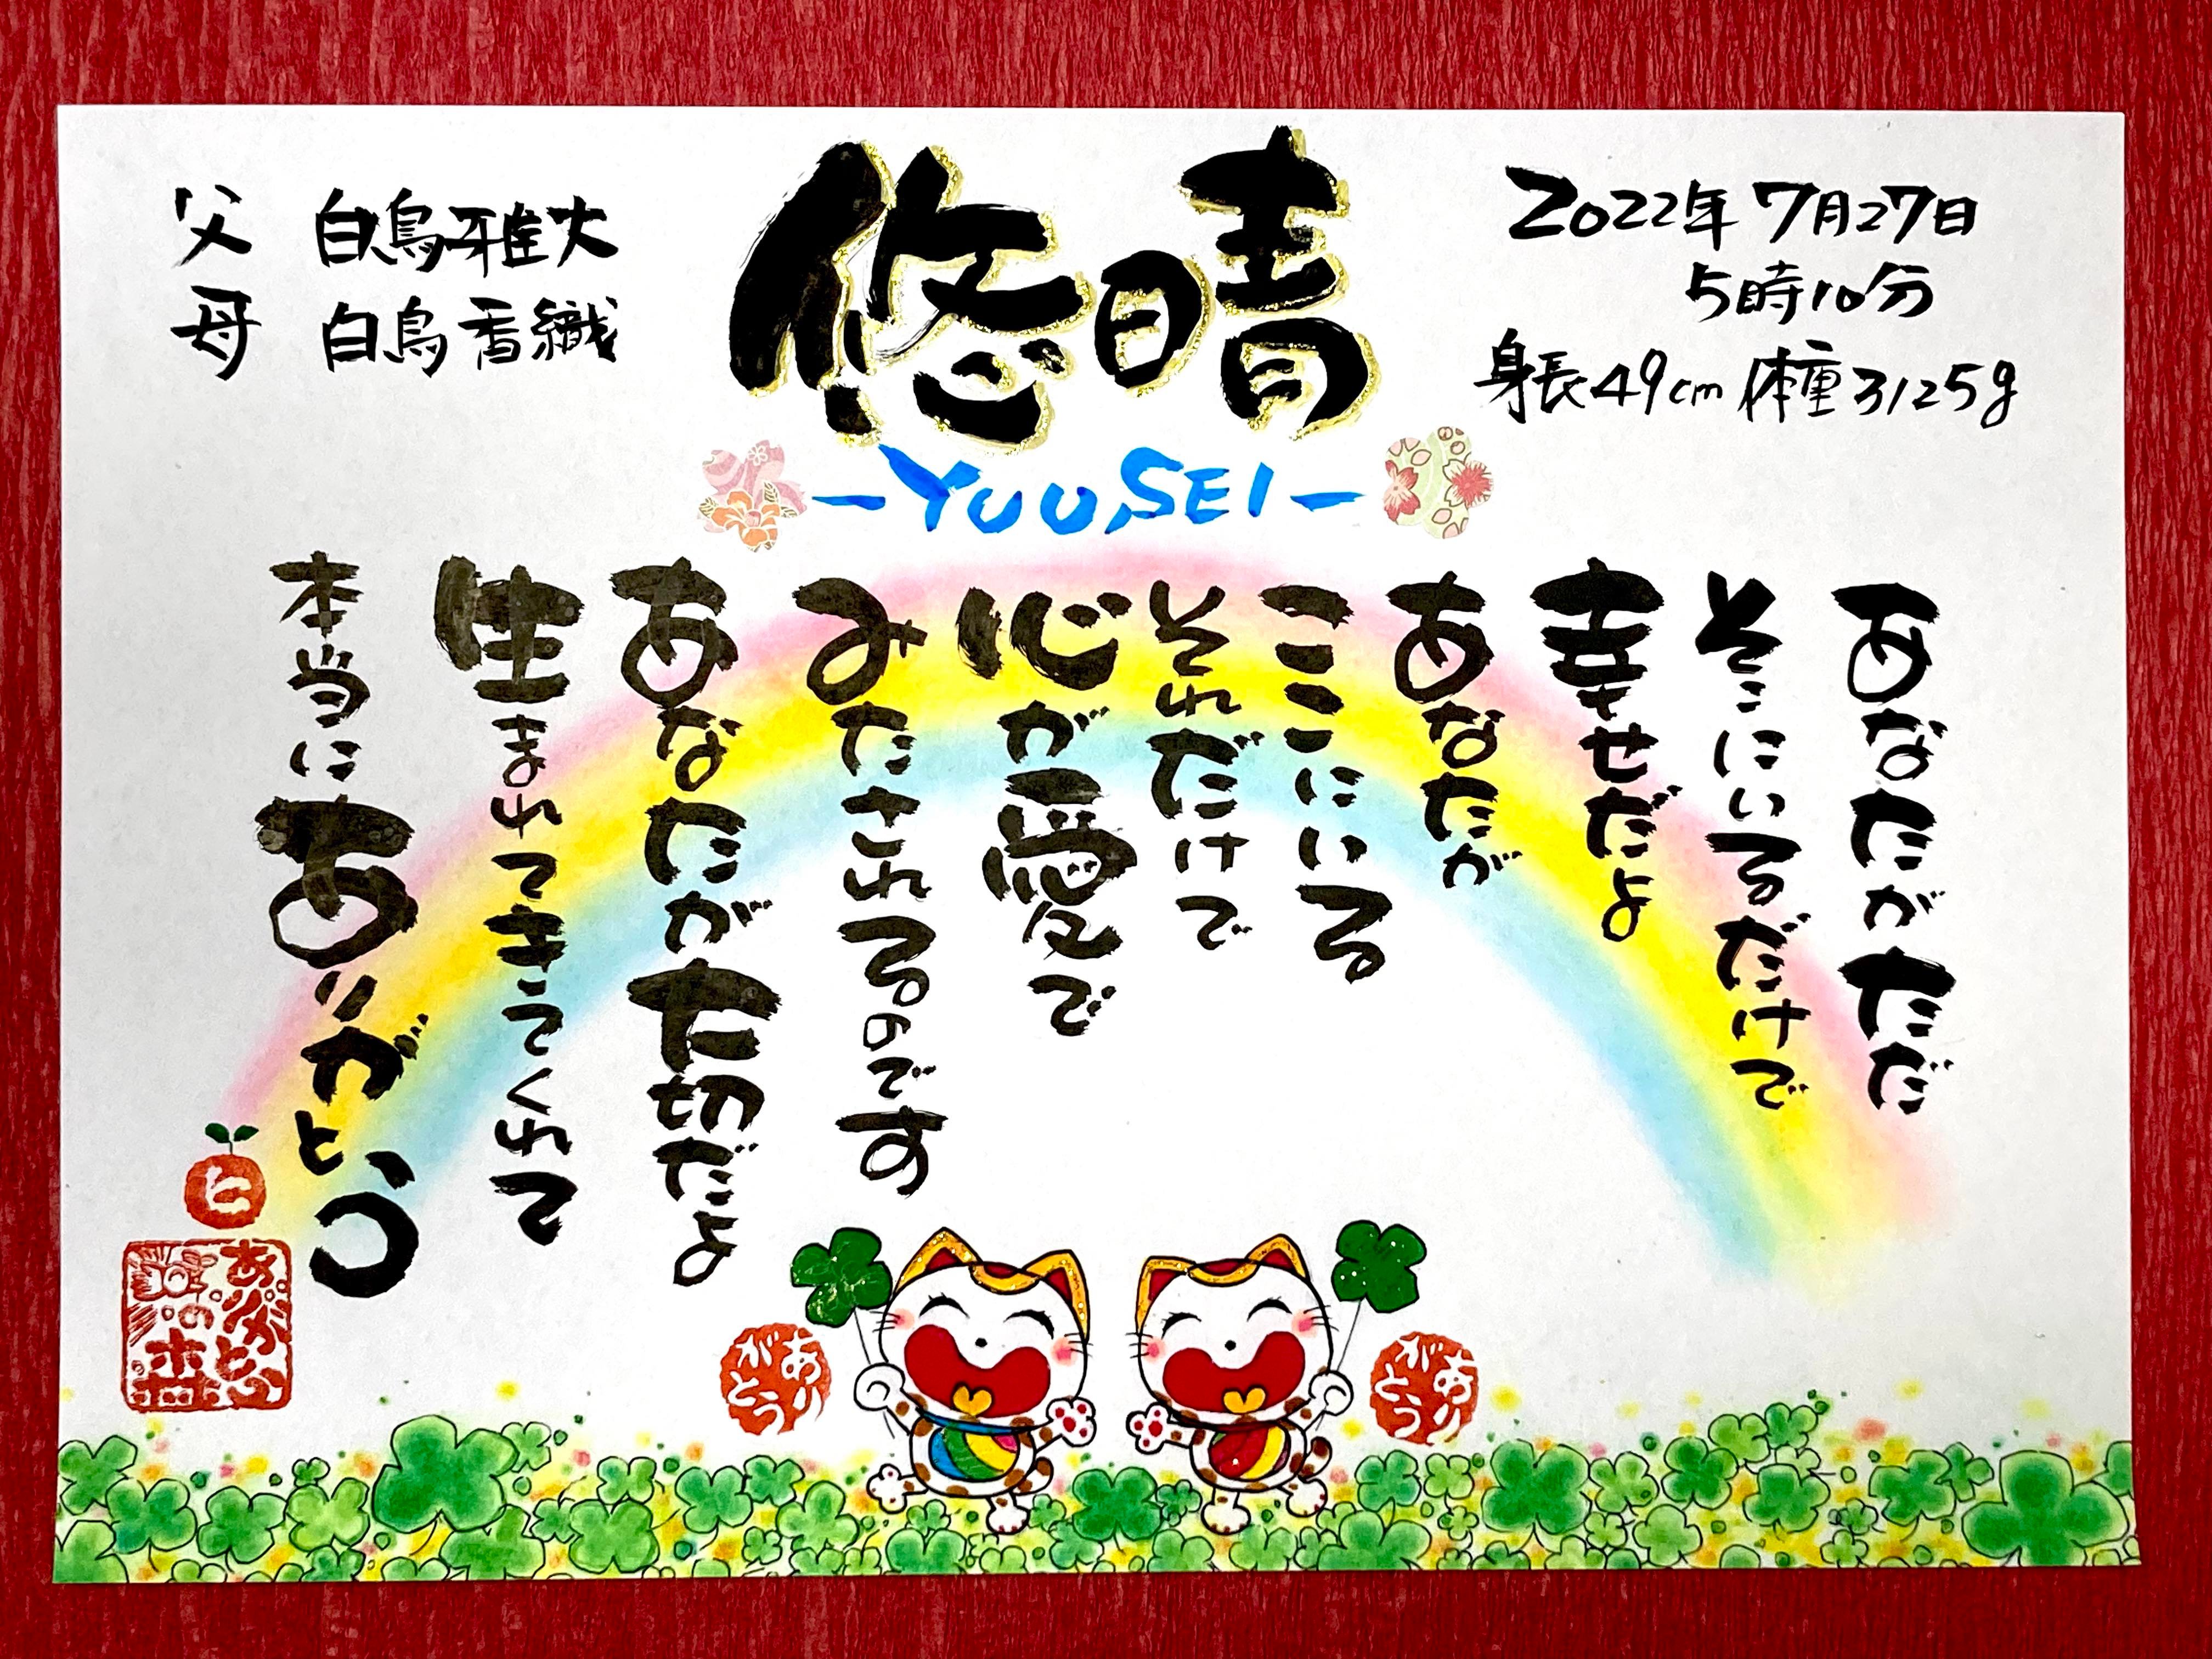 父 白鳥雅大
母 白鳥香織
悠晴
-YUUSEI-
2022年7月27日
5時10分
身長49cm 体重3125g
あなたがただ
そこにいるだけで
幸せだよ
あなたが
ここにいる
それだけで
心が愛で
みたされるのです
あなたが大切だよ
生まれてきてくれて
本当にありがとう
ヒ
ありがとう
の木
ありがとう
ありがとう